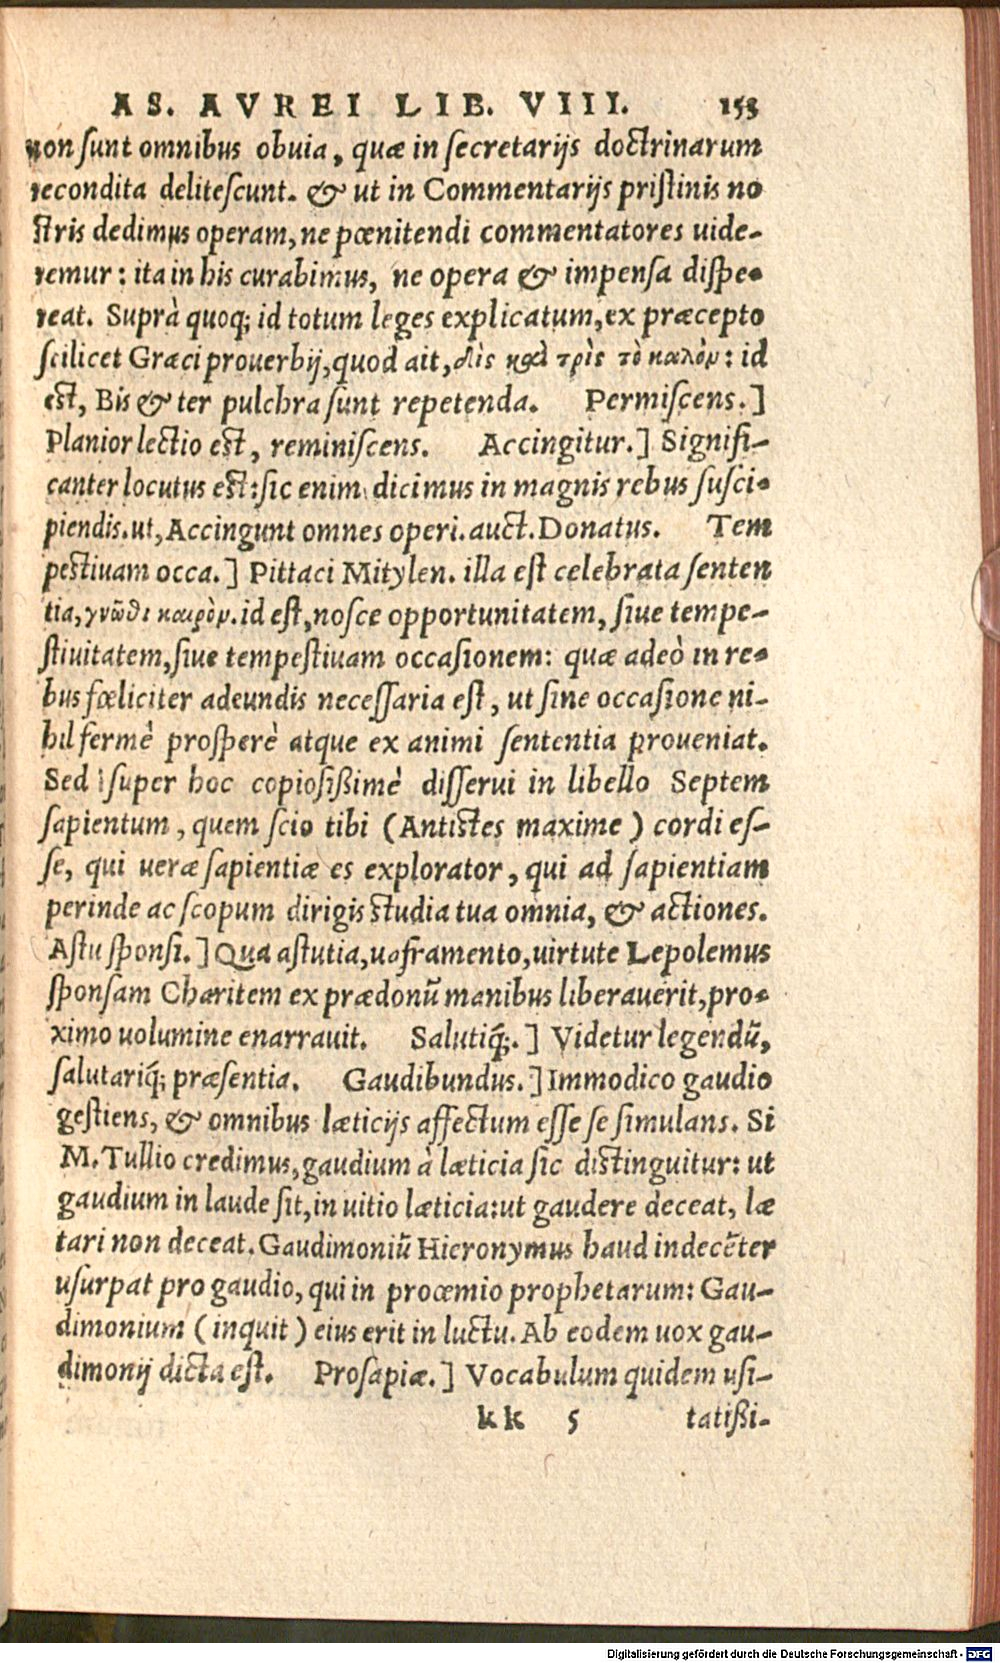 AS. AVREI LIB. VIII. 153
non sunt omnibus obuia, quæ in secretarijs doctrinarum
recondita delitescunt. & ut in Commentarijs pristinis no
stris dedimus operam, ne pœnitendi commentatores uide-
remur: ita in his curabimus, ne opera & impensa dispe-
reat. Suprà quoq; id totum leges explicatum, ex præcepto
scilicet Græci prouerbij, quod ait, δὶς καὶ τρὶς τὸ καλὸν: id
est, Bis & ter pulchra sunt repetenda. Permiscens.]
Planior lectio est, reminiscens. Accingitur.] Signifi-
canter locutus est: sic enim dicimus in magnis rebus susci-
piendis. ut, Accingunt omnes operi. auct. Donatus. Tem
pestiuam occa.] Pittaci Mitylen. illa est celebrata senten
tia, γνῶθι καιρὸν. id est, nosce opportunitatem, siue tempe-
stiuitatem, siue tempestiuam occasionem: quæ adeò in re-
bus fœliciter adeundis necessaria est, ut sine occasione ni-
hil fermè prosperè atque ex animi sententia proueniat.
Sed super hoc copiosißimè disserui in libello Septem
sapientum, quem scio tibi (Antistes maxime) cordi es-
se, qui ueræ sapientiæ es explorator, qui ad sapientiam
perinde ac scopum dirigis studia tua omnia, & actiones.
Astu sponsi.] Qua astutia, uaframento, uirtute Lepolemus
sponsam Charitem ex prædonũ manibus liberauerit, pro-
ximo uolumine enarrauit. Salutiq́;.] Videtur legendũ,
salutariq́; præsentia. Gaudibundus.] Immodico gaudio
gestiens, & omnibus læticijs affectum esse se simulans. Si
M. Tullio credimus, gaudium à læticia sic distinguitur: ut
gaudium in laude sit, in uitio læticia: ut gaudere deceat, læ
tari non deceat. Gaudimoniũ Hieronymus haud indecẽter
usurpat pro gaudio, qui in proœmio prophetarum: Gau-
dimonium (inquit) eius erit in luctu. Ab eodem uox gau-
dimonij dicta est. Prosapiæ.] Vocabulum quidem usi-
kk 5 tatißi-
Digitalisierung gefördert durch die Deutsche Forschungsgemeinschaft - DFG